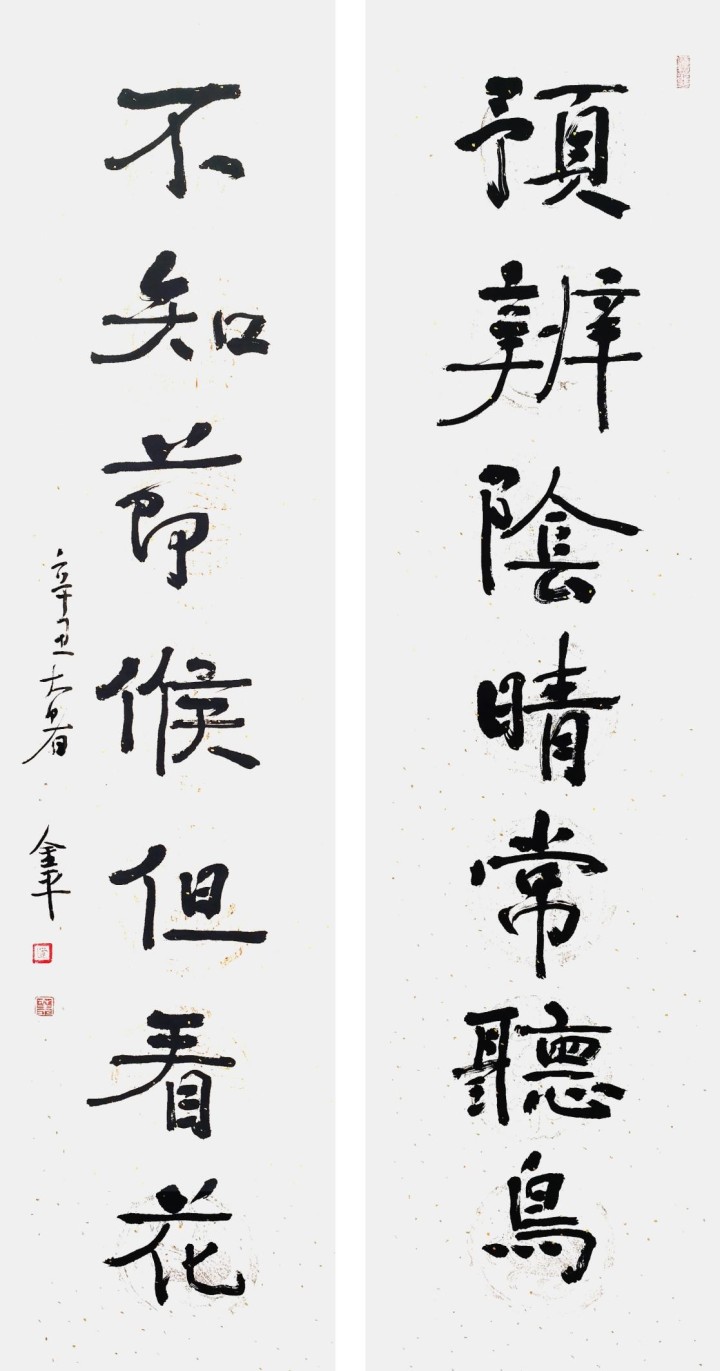 預辨陰晴常聽鳥
不知節候但看花
辛丑大暑
金平